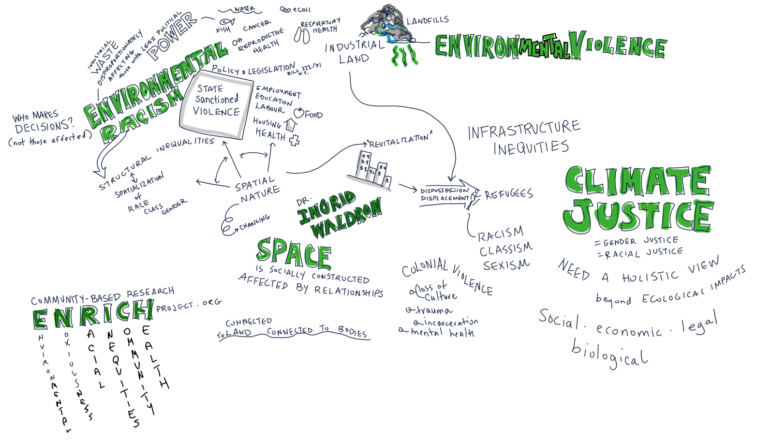 INDUSTRIAL
WASTE
DISPROPORTIONATELY
AFFECTING
those WITH LESS POLITICAL
POWER
WATER
FISH
eCOLI
CANCER
REPRODUCTIVE
HEALTH
RESPIRATORY
HEALTH
LANDFILLS
INDUSTRIAL
LAND
ENVIRONMENTAL VIOLENCE
ENVIRONMENTAL
RACISM
WHO MAKES
DECISIONS?
(not those affected)
POLICY & LEGISLATION
STATE
Sanctioned
VIOLENCE
EMPLOYMENT
EDUCATION
LABOUR
FOOD
HOUSING
HEALTH
STRUCTURAL INEQUALITIES
SPATIALIZATION
of
RACE
CLASS
GENDER
SPATIAL
NATURE
CHANGING
"REVITALIZATION"
DISPOSSESSION
DISPLACEMENT
REFUGEES
RACISM
CLASSISM
SEXISM
INFRASTRUCTURE
INEQUITIES
DR.
INGRID
WALDRON
SPACE
IS SOCIALLY CONSTRUCTED
AFFECTED BY RELATIONSHIPS
CONNECTED
TO LAND CONNECTED TO BODIES
COLONIAL VIOLENCE
loss of
culture
trauma
incarceration
mental health
CLIMATE
JUSTICE
= GENDER JUSTICE
= RACIAL JUSTICE
NEED A HOLISTIC VIEW
beyond ECOLOGICAL IMPACTS
Social . economic . legal
biological
COMMUNITY-BASED RESEARCH
ENRICH PROJECT.ORG
ENVIRONMENTAL
NOXIOUSNESS
RACIAL
INEQUITIES
COMMUNITY
HEALTH